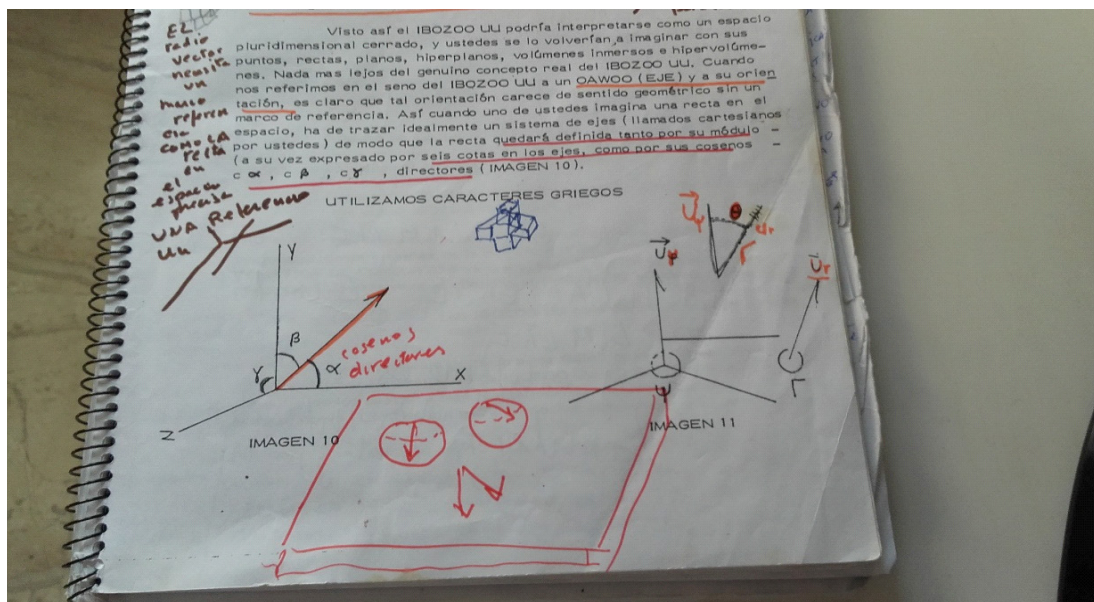 Visto así el IBOZOO UU podría interpretarse como un espacio
pluridimensional cerrado, y ustedes se lo volverían a imaginar con sus
puntos, rectas, planos, hiperplanos, volúmenes inmersos e hipervolúme-
nes. Nada mas lejos del genuino concepto real del IBOZOO UU. Cuando
nos referimos en el seno del IBOZOO UU a un OAWOO (EJE) y a su orien
tación, es claro que tal orientación carece de sentido geométrico sin un
marco de referencia. Así cuando uno de ustedes imagina una recta en el
espacio, ha de trazar idealmente un sistema de ejes (llamados cartesianos
por ustedes) de modo que la recta quedará definida tanto por su módulo -
(a su vez expresado por seis cotas en los ejes, como por sus cosenos -
c α , c β , c γ , directores (IMAGEN 10).
EL
radio
vector
necesita
un
marco
referen
cia
COMO LA
recta
en
el
espacio
precisa
UNA Referencia
UTILIZAMOS CARACTERES GRIEGOS
Y
β
γ
α
cosenos
directores
X
Z
IMAGEN 10
U ψ
θ
Ur
r
U ψ
Ur
Ψ
Γ
IMAGEN 11